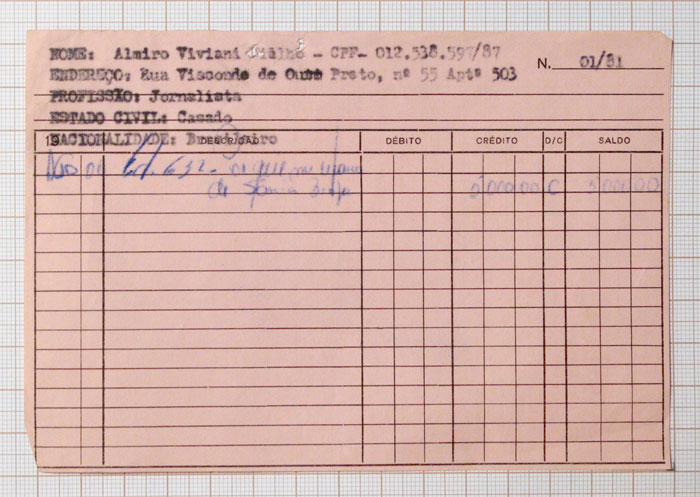 NOME: Almiro Viviani Fialho - CPF- 012.538.597/87
ENDEREÇO: Rua Visconde de Ouro Preto, nº 55 Aptº 503
N. 01/81
PROFISSÃO: Jornalista
ESTADO CIVIL: Casado
NACIONALIDADE: Brasileiro
19 DESCRIÇÃO DÉBITO CRÉDITO D/C SALDO
de Sonia Braga 5000 00 C 5000 00